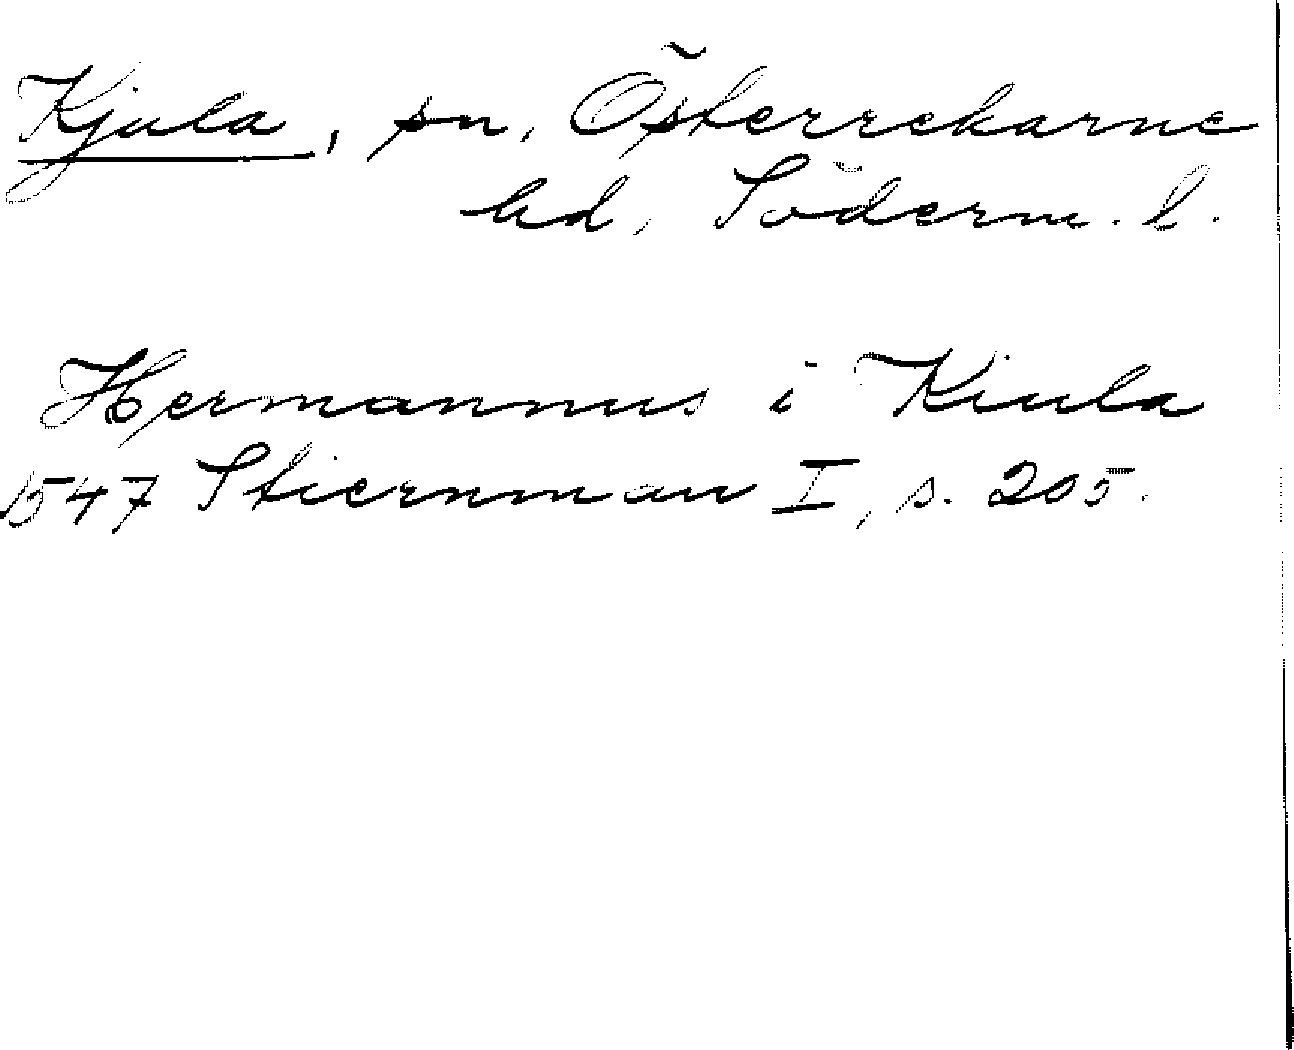 Kjula, sn, Österrekarne
hd, Söderm. l.
Hermannus i Kiula
1547 Stiernman I, s. 205.